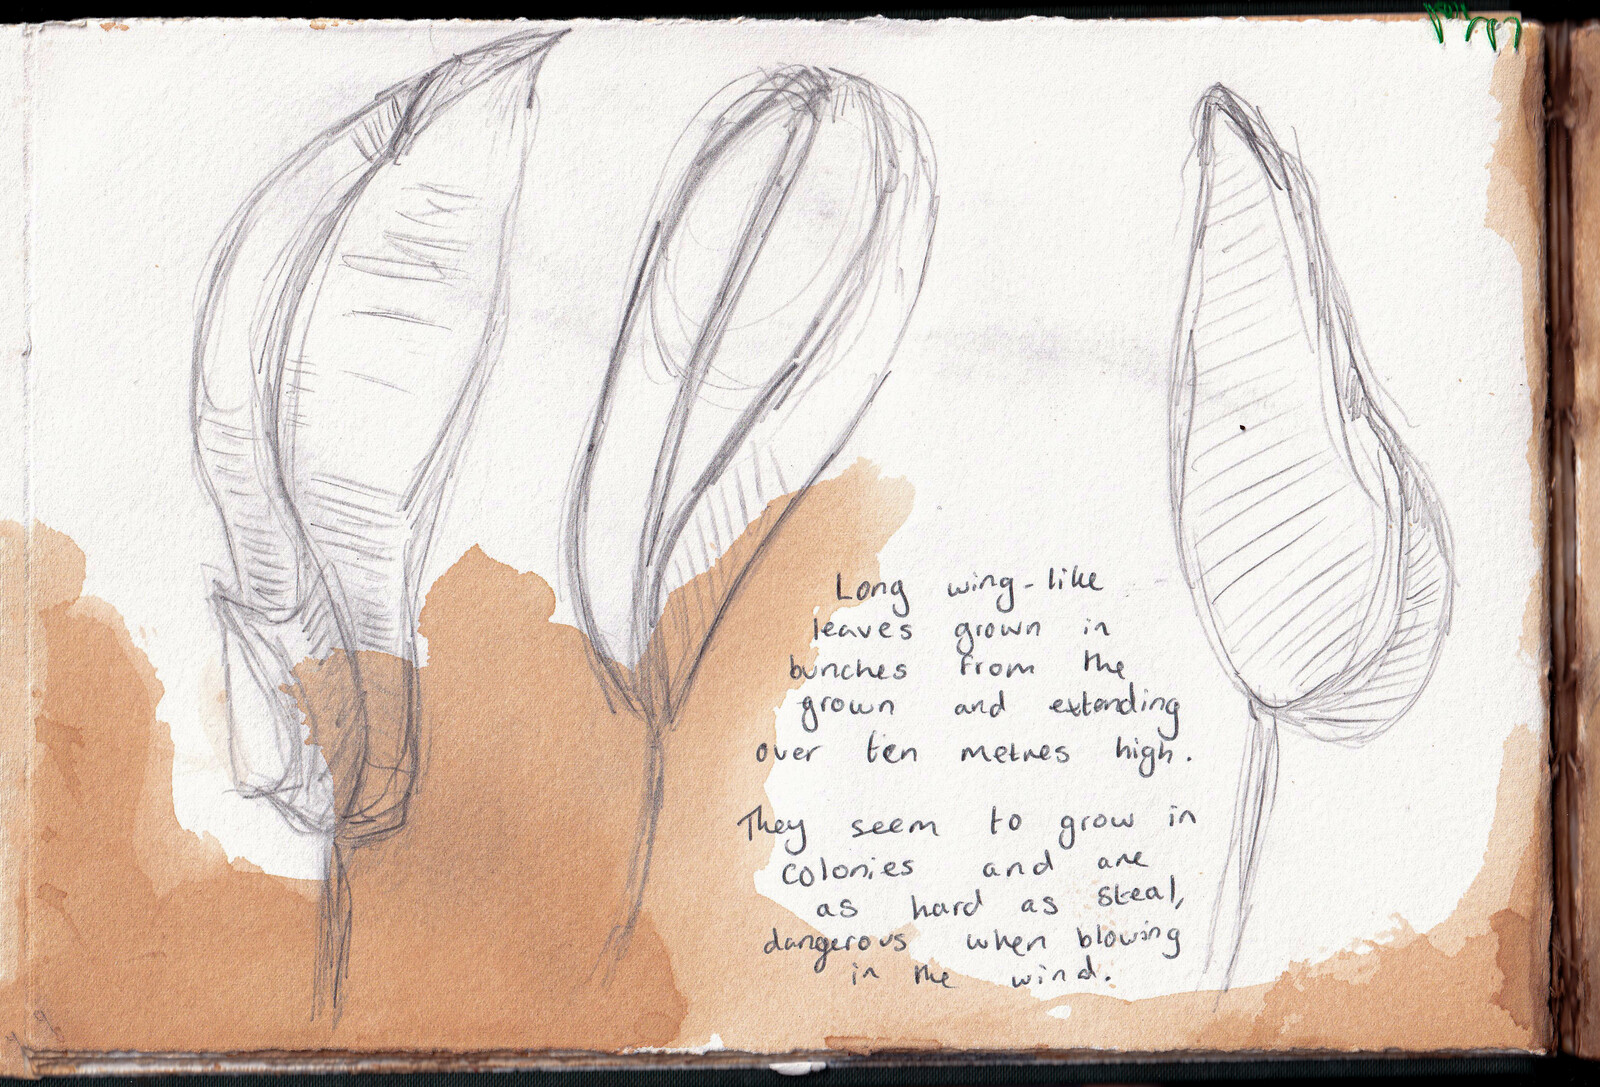 Long wing-like
leaves grown in
bunches from the
grown and extending
over ten metres high.
They seem to grow in
colonies and are
as hard as steal,
dangerous when blowing
in the wind.